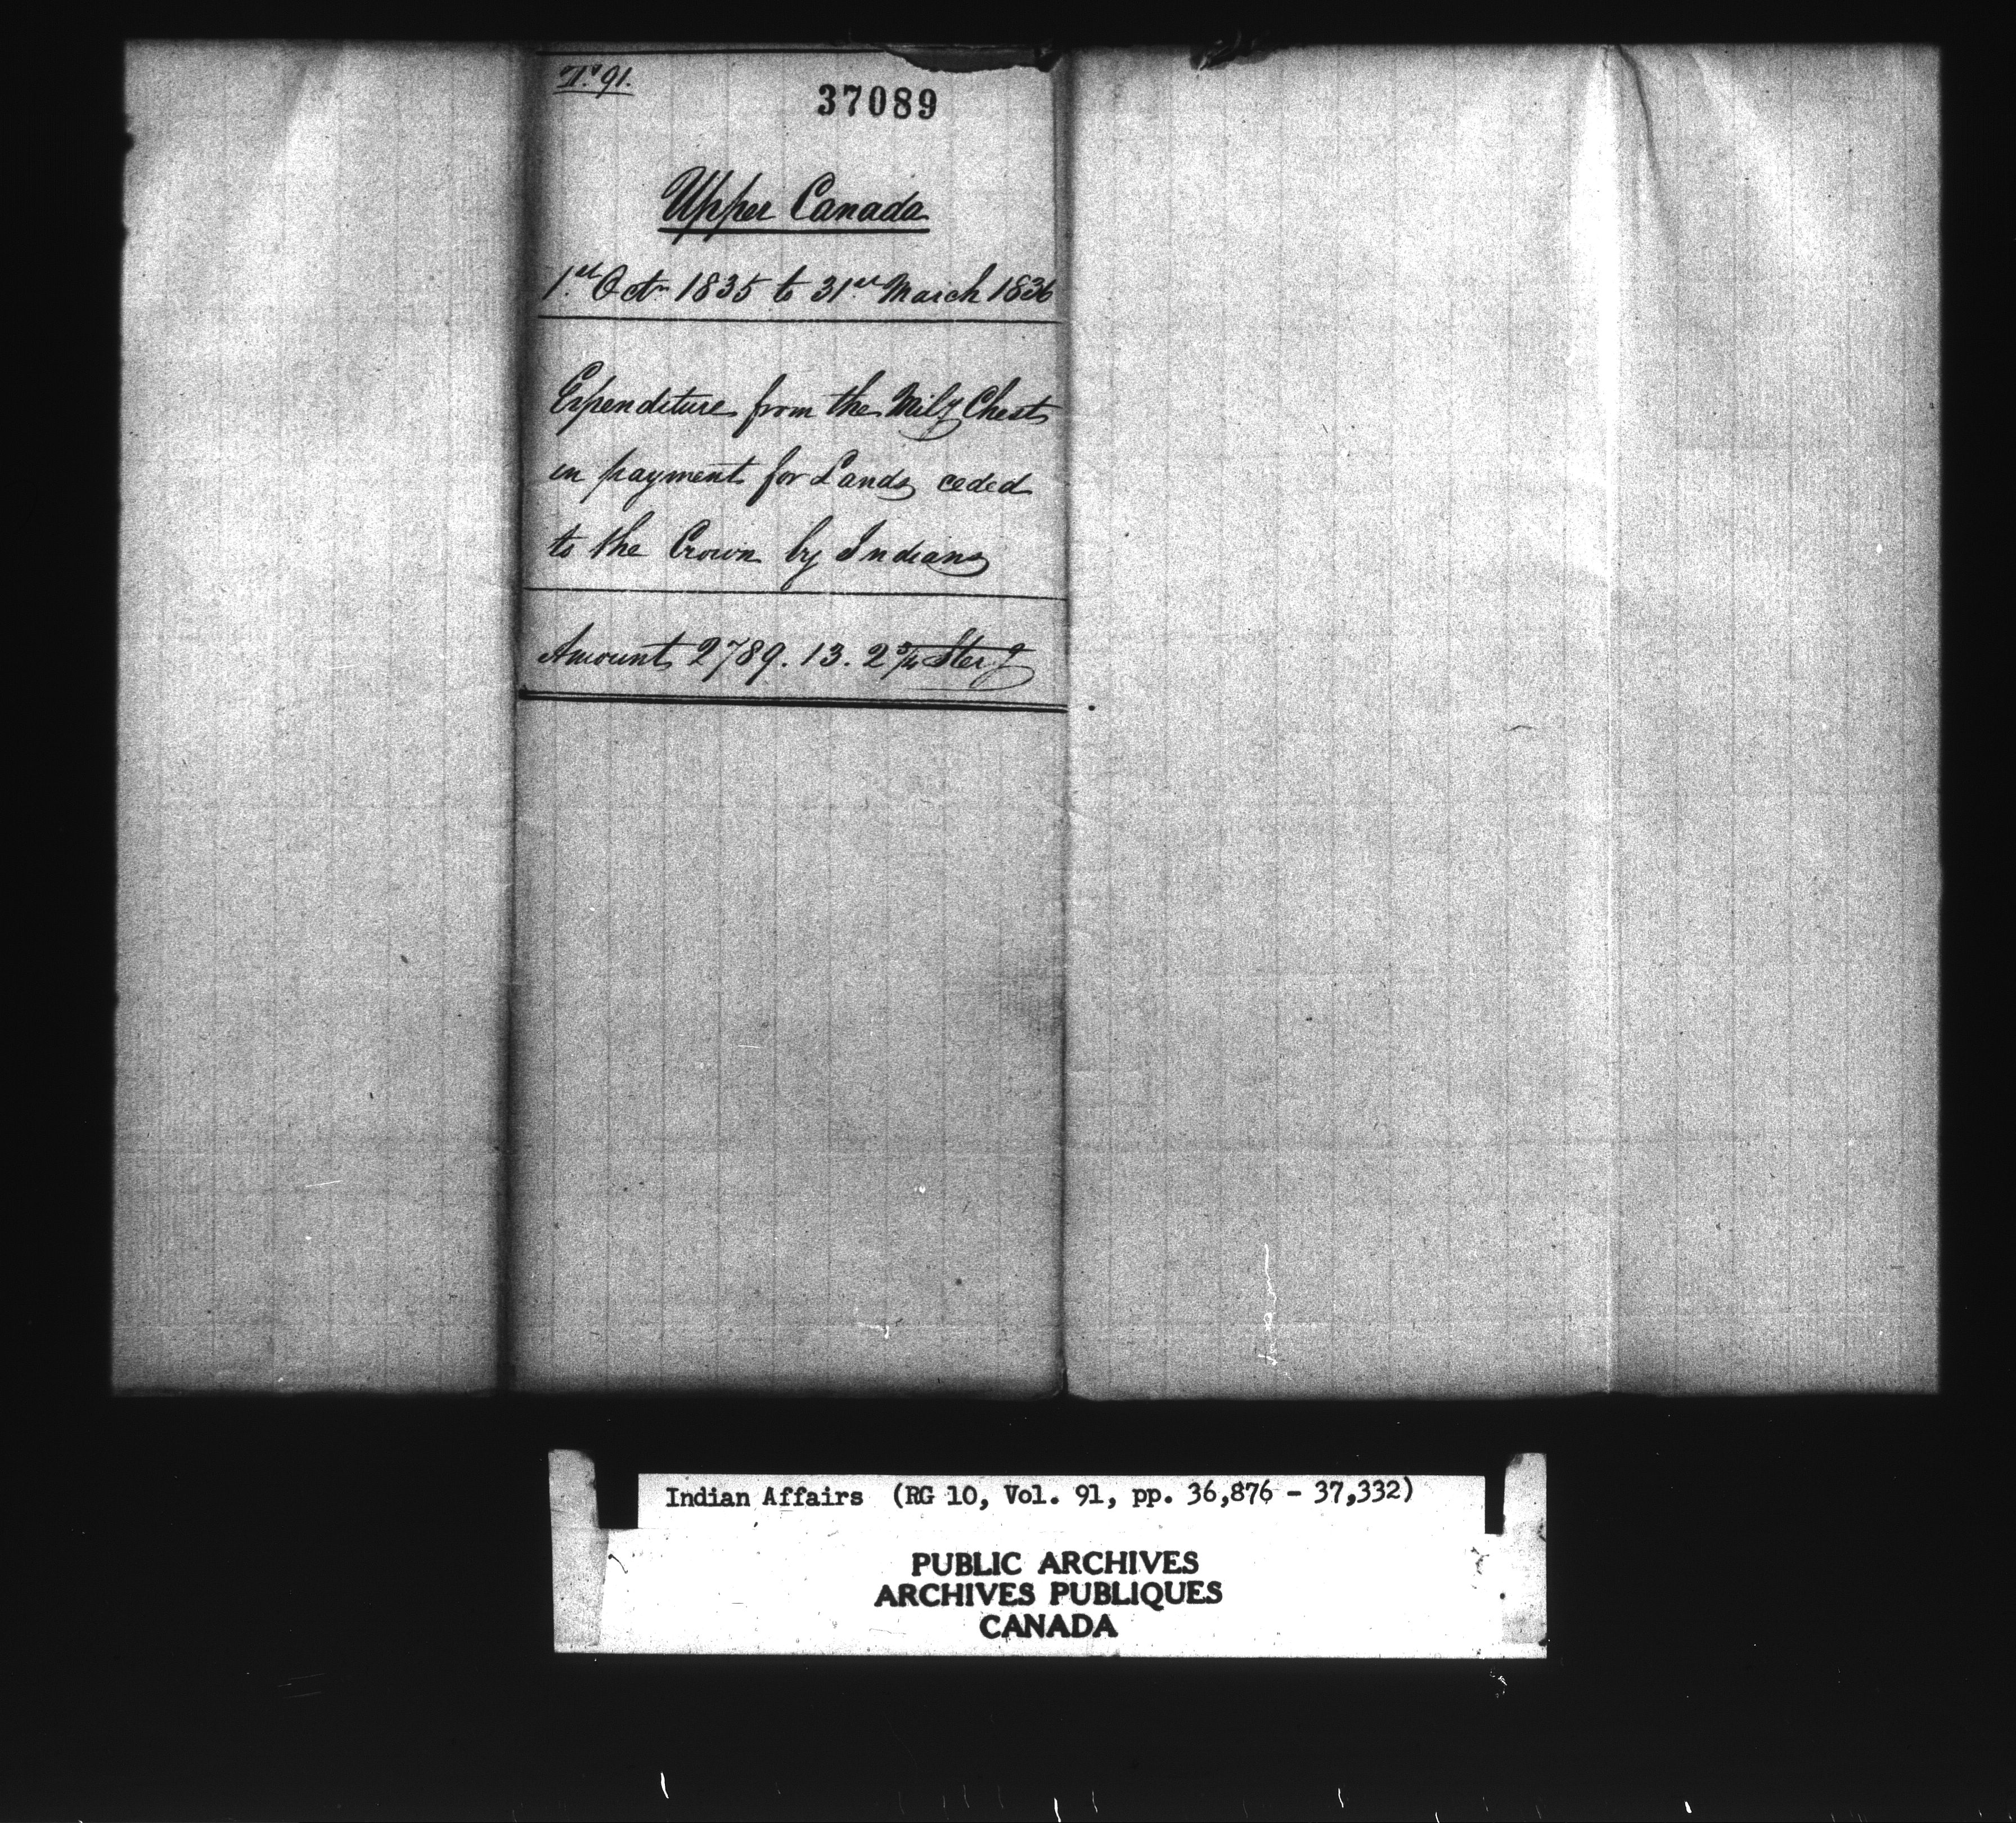 No. 91.
37089
Upper Canada
1st Octr 1835 to 31st March 1836
Expenditure from the Mily Chest
in payment for Lands ceded
to the Crown by Indians
Amount 2789. 13. 2 3/4 Sterg
Indian Affairs (RG 10, Vol. 91, pp. 36,876 - 37,332)
PUBLIC ARCHIVES
ARCHIVES PUBLIQUES
CANADA